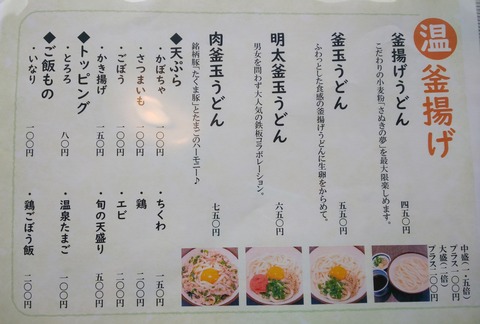 温 釜揚げ
釜揚げうどん 四五〇円
こだわりの小麦粉「さぬきの夢」を最大限楽しめます。
中盛(一・五倍)
プラス一〇〇円
大盛(二倍)
プラス二〇〇円
釜玉うどん 五五〇円
ふわっとした食感の釜揚げうどんに生卵をからめて。
明太釜玉うどん 六五〇円
男女を問わず大人気の鉄板コラボレーション。
肉釜玉うどん 七五〇円
銘柄豚「たくま豚」とたまごのハーモニー♪
◆天ぷら
・かぼちゃ 一〇〇円
・ちくわ 一五〇円
・さつまいも 一〇〇円
・鶏 二〇〇円
・ごぼう 一〇〇円
・エビ 二〇〇円
・かき揚げ 一五〇円
・旬の天盛り 五〇〇円
◆トッピング
・とろろ 八〇円
・温泉たまご 一〇〇円
◆ご飯もの
・いなり 一〇〇円
・鶏ごぼう飯 二〇〇円